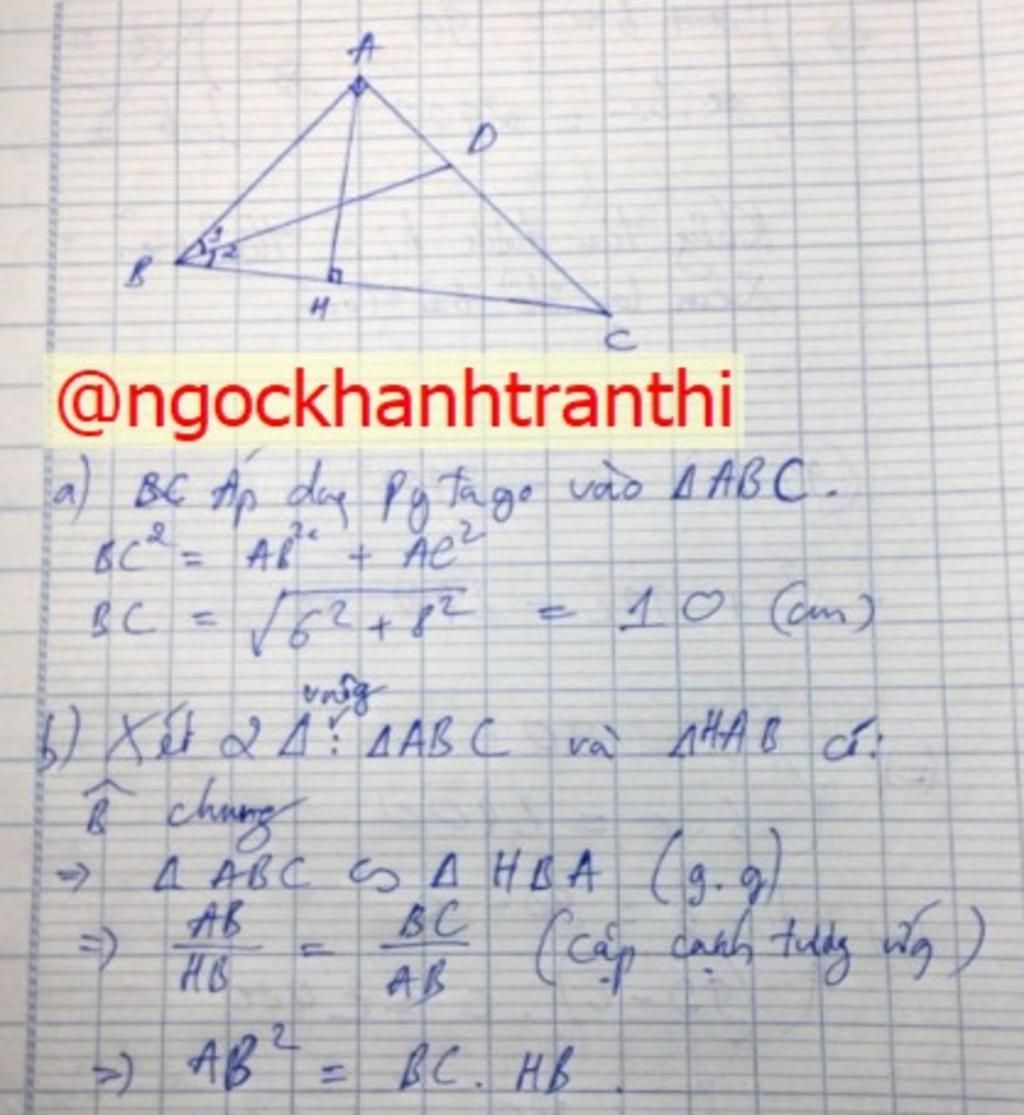 A
D
B 1 2
H
C
@ngockhanhtranthi
a) BC Áp dụng Pytago vào ΔABC.
BC² = AB² + AC²
BC = √6² + 8² = 10 (cm)
vuông
b) Xét 2 Δ : ΔABC và ΔHAB có:
B̂ chung
=> Δ ABC ∽ Δ HBA (g.g)
=> AB/HB = BC/AB (cặp cạnh tương ứng)
=> AB² = BC. HB.